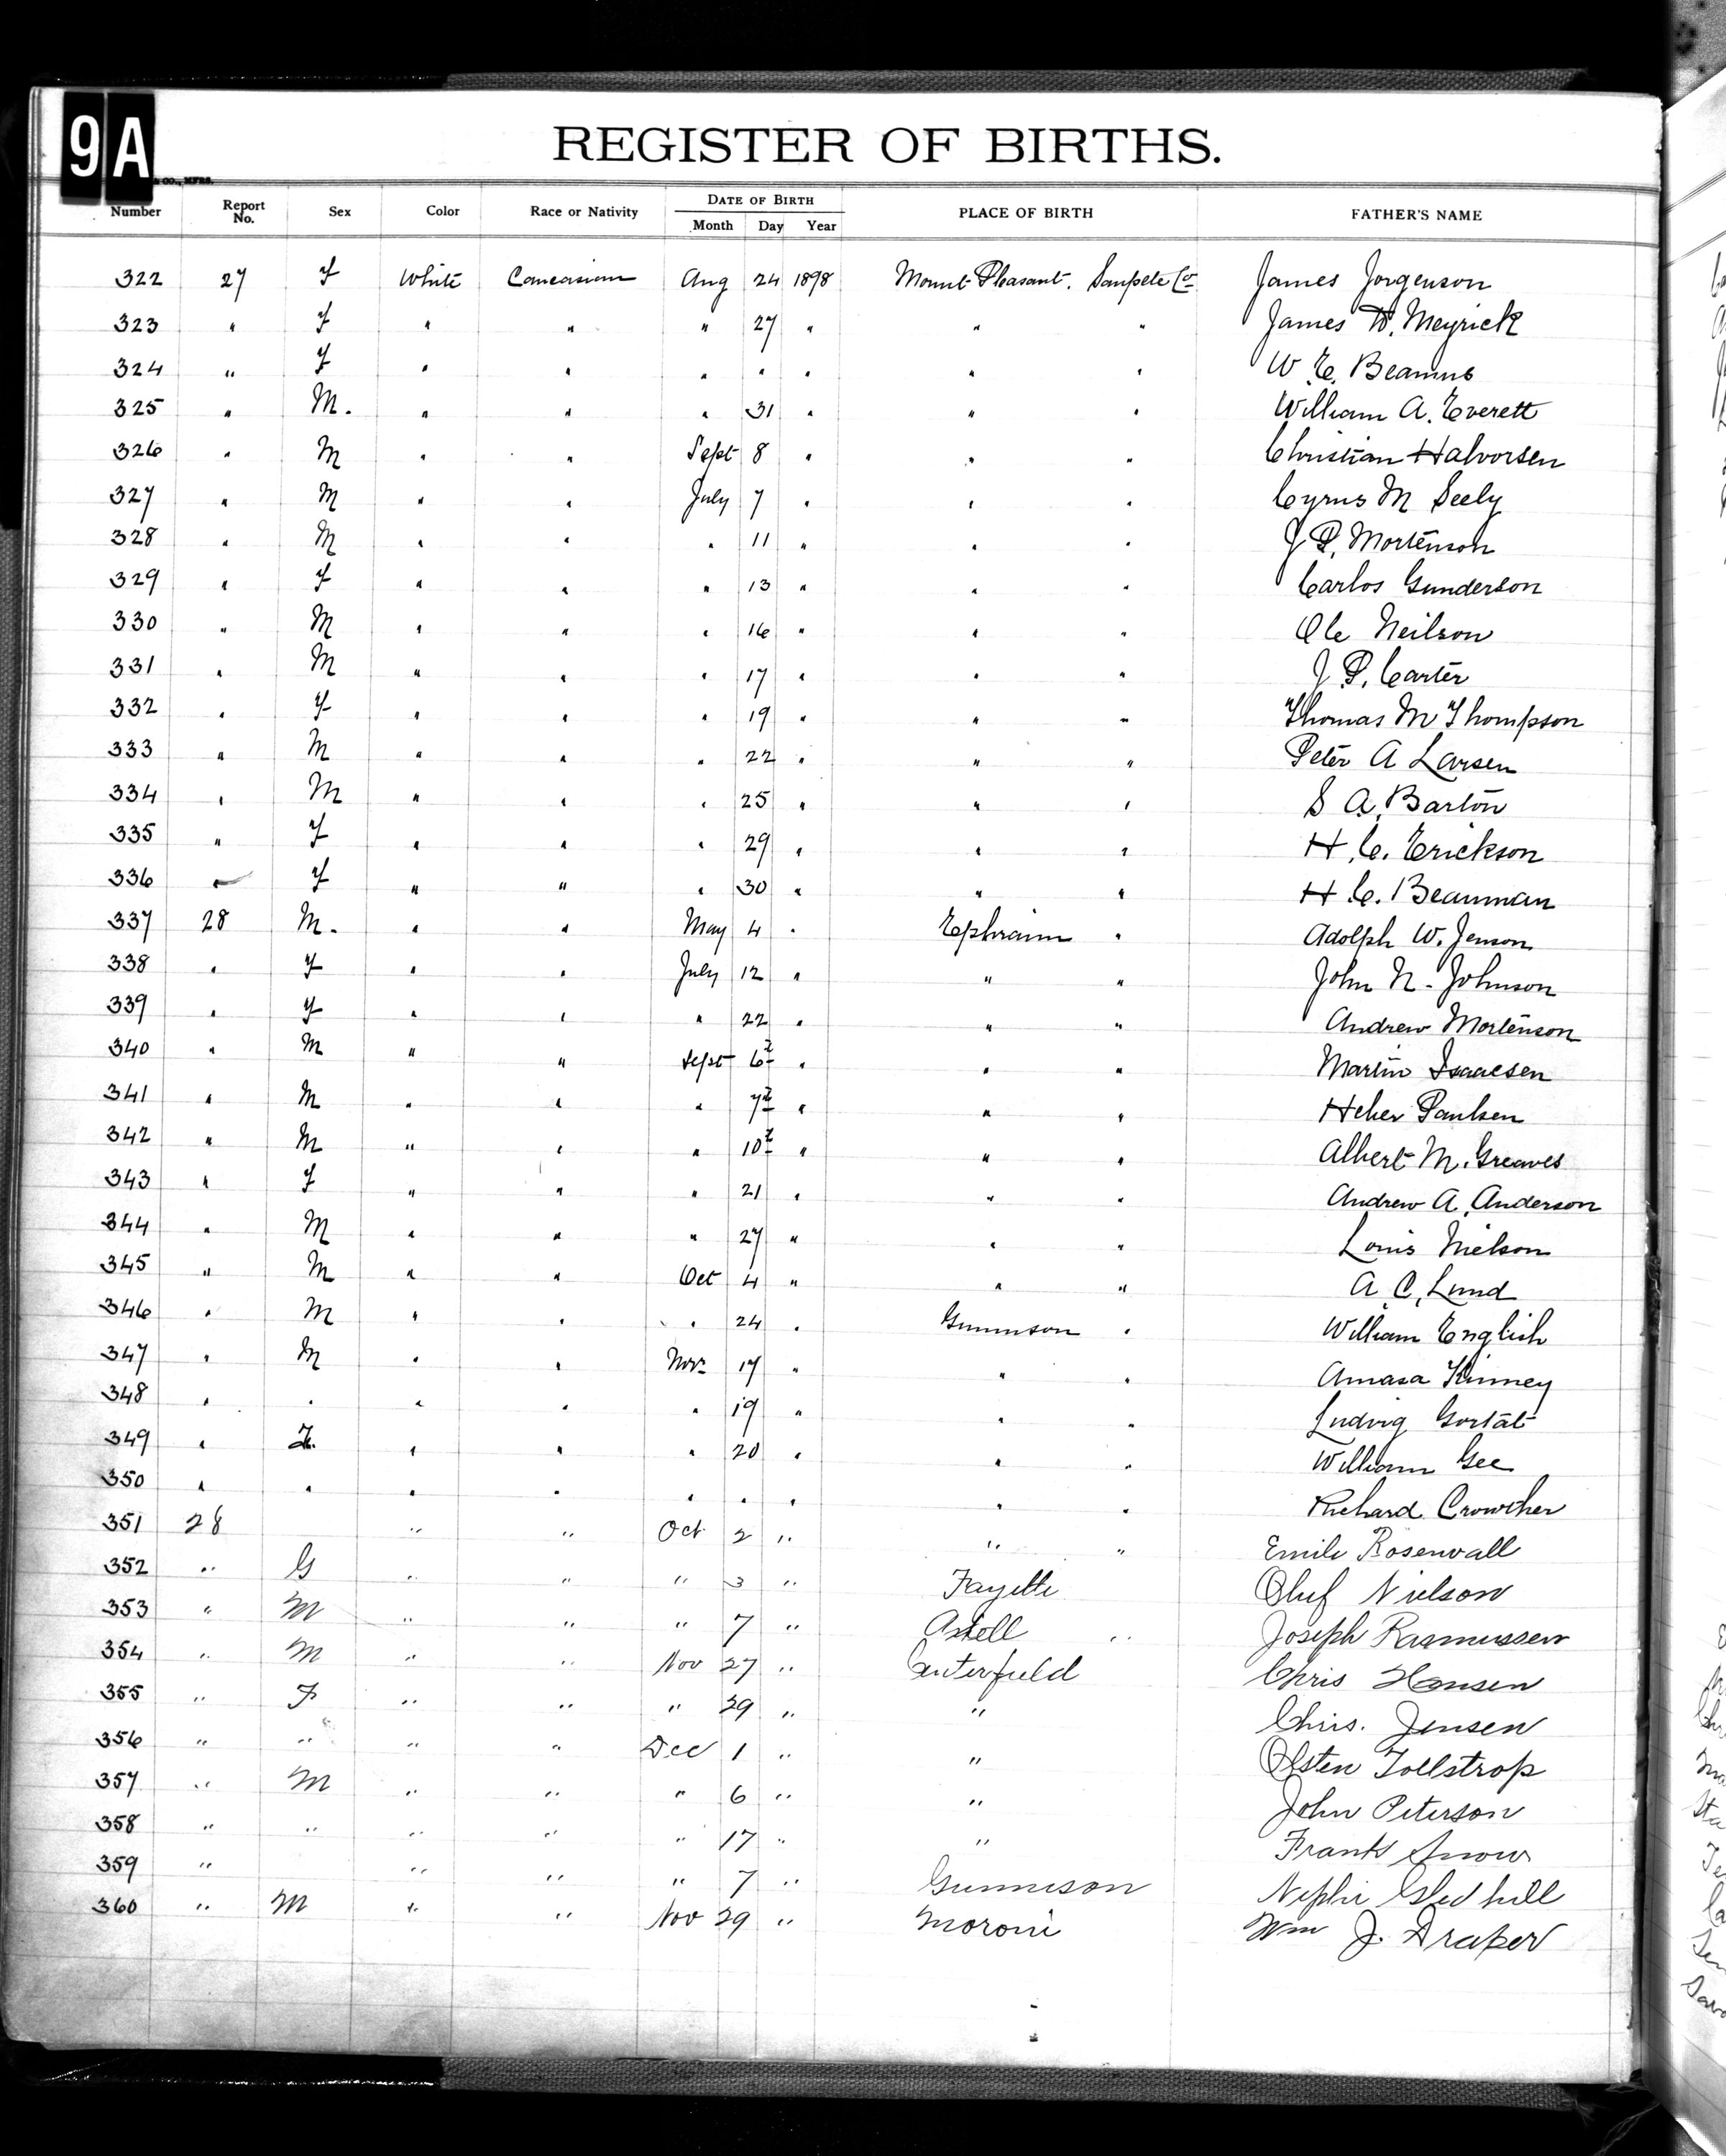 9A
& CO., MFRS.
REGISTER OF BIRTHS.
Number Report No. Sex Color Race or Nativity DATE OF BIRTH Month Day Year PLACE OF BIRTH FATHER'S NAME
322 27 F White Caucasian Aug 24 1898 Mount Pleasant, Sanpete Co James Jorgenson
323 " F " " " 27 " " " James W. Meyrick
324 " F " " " " " " " W. E.
325 " M. " " " 31 " " " William A. Everett
326 " M " " Sept 8 " " " Christian Halvorsen
327 " M " " July 7 " " " Cyrus M Seely
328 " M " " " 11 " " " J. P. Mortenson
329 " F " " " 13 " " " Carlos Gunderson
330 " M " " " 16 " " " Ole Neilson
331 " M " " " 17 " " " J. P. Carter
332 " F " " " 19 " " " Thomas M Thompson
333 " M " " " 22 " " " Peter A Larsen
334 " M " " " 25 " " " S A. Barton
335 " F " " " 29 " " " H. C. Erickson
336 " F " " " 30 " " " H. C. Beauman
337 28 M. " " May 4 " Ephraim " Adolph W. Jenson
338 " F " " July 12 " " " John N. Johnson
339 " F " " " 22 " " " Andrew Mortenson
340 " M " " Sept 6 " " " Martin Isaacsen
341 " M " " " 7 " " " Heber Paulsen
342 " M " " " 10 " " " Albert M. Greaves
343 " F " " " 21 " " " Andrew A. Anderson
344 " M " " " 27 " " " Louis Nielson
345 " M " " Oct 4 " " " A. C. Lund
346 " M " " " 24 " Gunnison " William English
347 " M " " Nov 17 " " " Amasa Kinney
348 " " " " " 19 " " " Ludvig
349 " F. " " " 20 " " " William Gee
350 " " " " " " " " " Richard Crowther
351 28 " " Oct 2 " " " Emile Rosenvall
352 " G " " " 3 " Fayette Oluf Nielson
353 " M " " " 7 " Axtell " Joseph Rasmussen
354 " M " " Nov 27 " Centerfield Chris Hansen
355 " F " " " 29 " " Chris. Jensen
356 " " " " Dec 1 " " Olsten Tollstrop
357 " M " " " 6 " " John Peterson
358 " " " " " 17 " " Frank Snow
359 " " " " 7 " Gunnison Nephi Gledhill
360 " M " " Nov 29 " Moroni Wm J. Draper